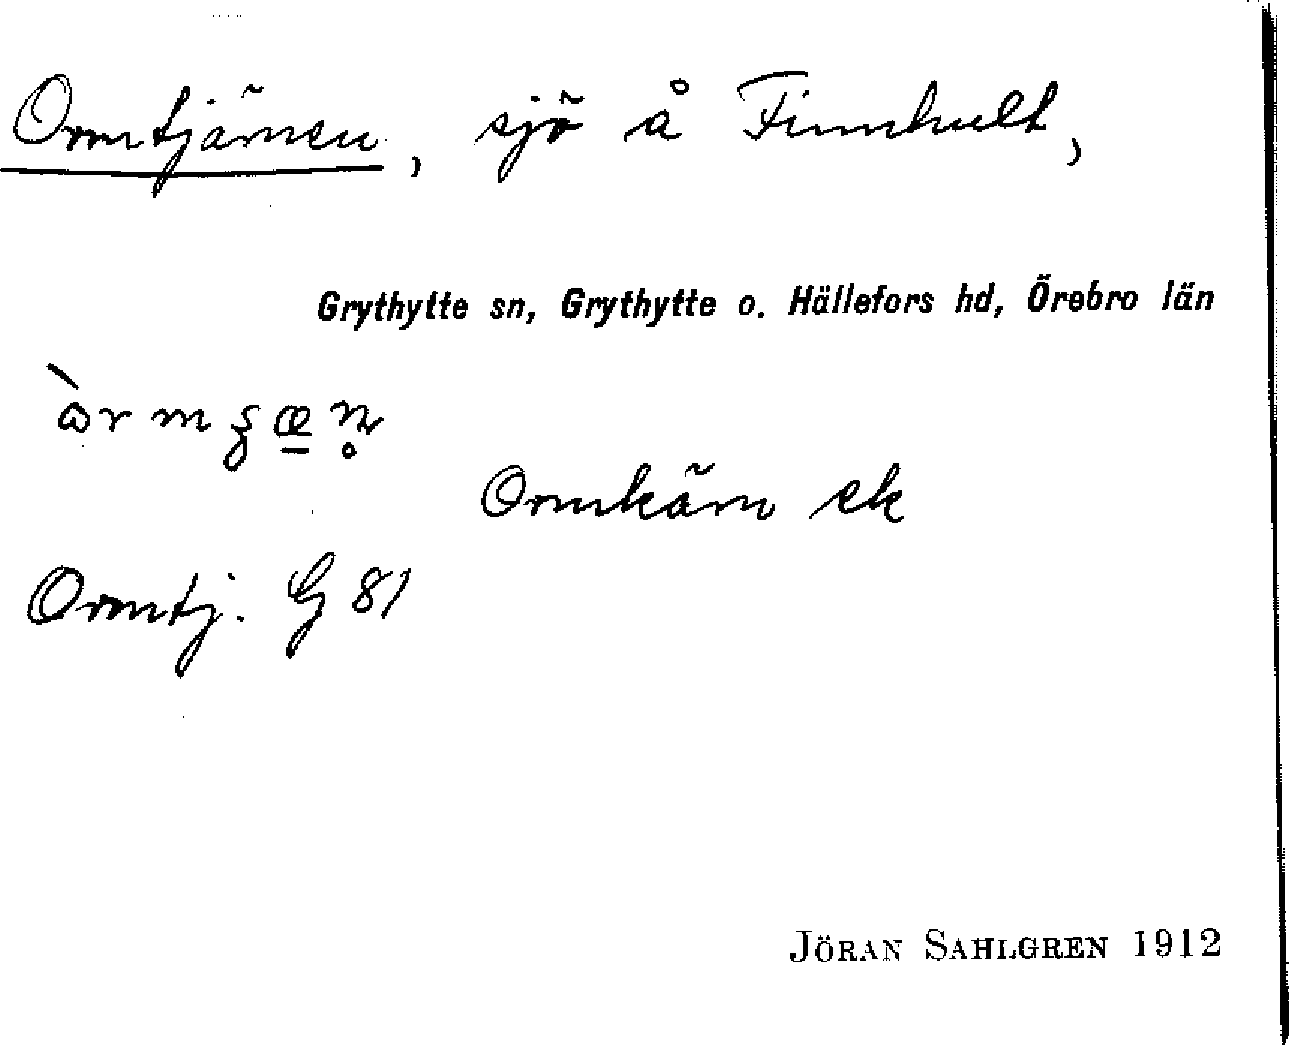 Ormtjärnen, sjö å Finnhult,
Grythytte sn, Grythytte o. Hällefors hd, Örebro län
Ormkärn ek
Ormtj. G 81
JÖRAN SAHLGREN 1912